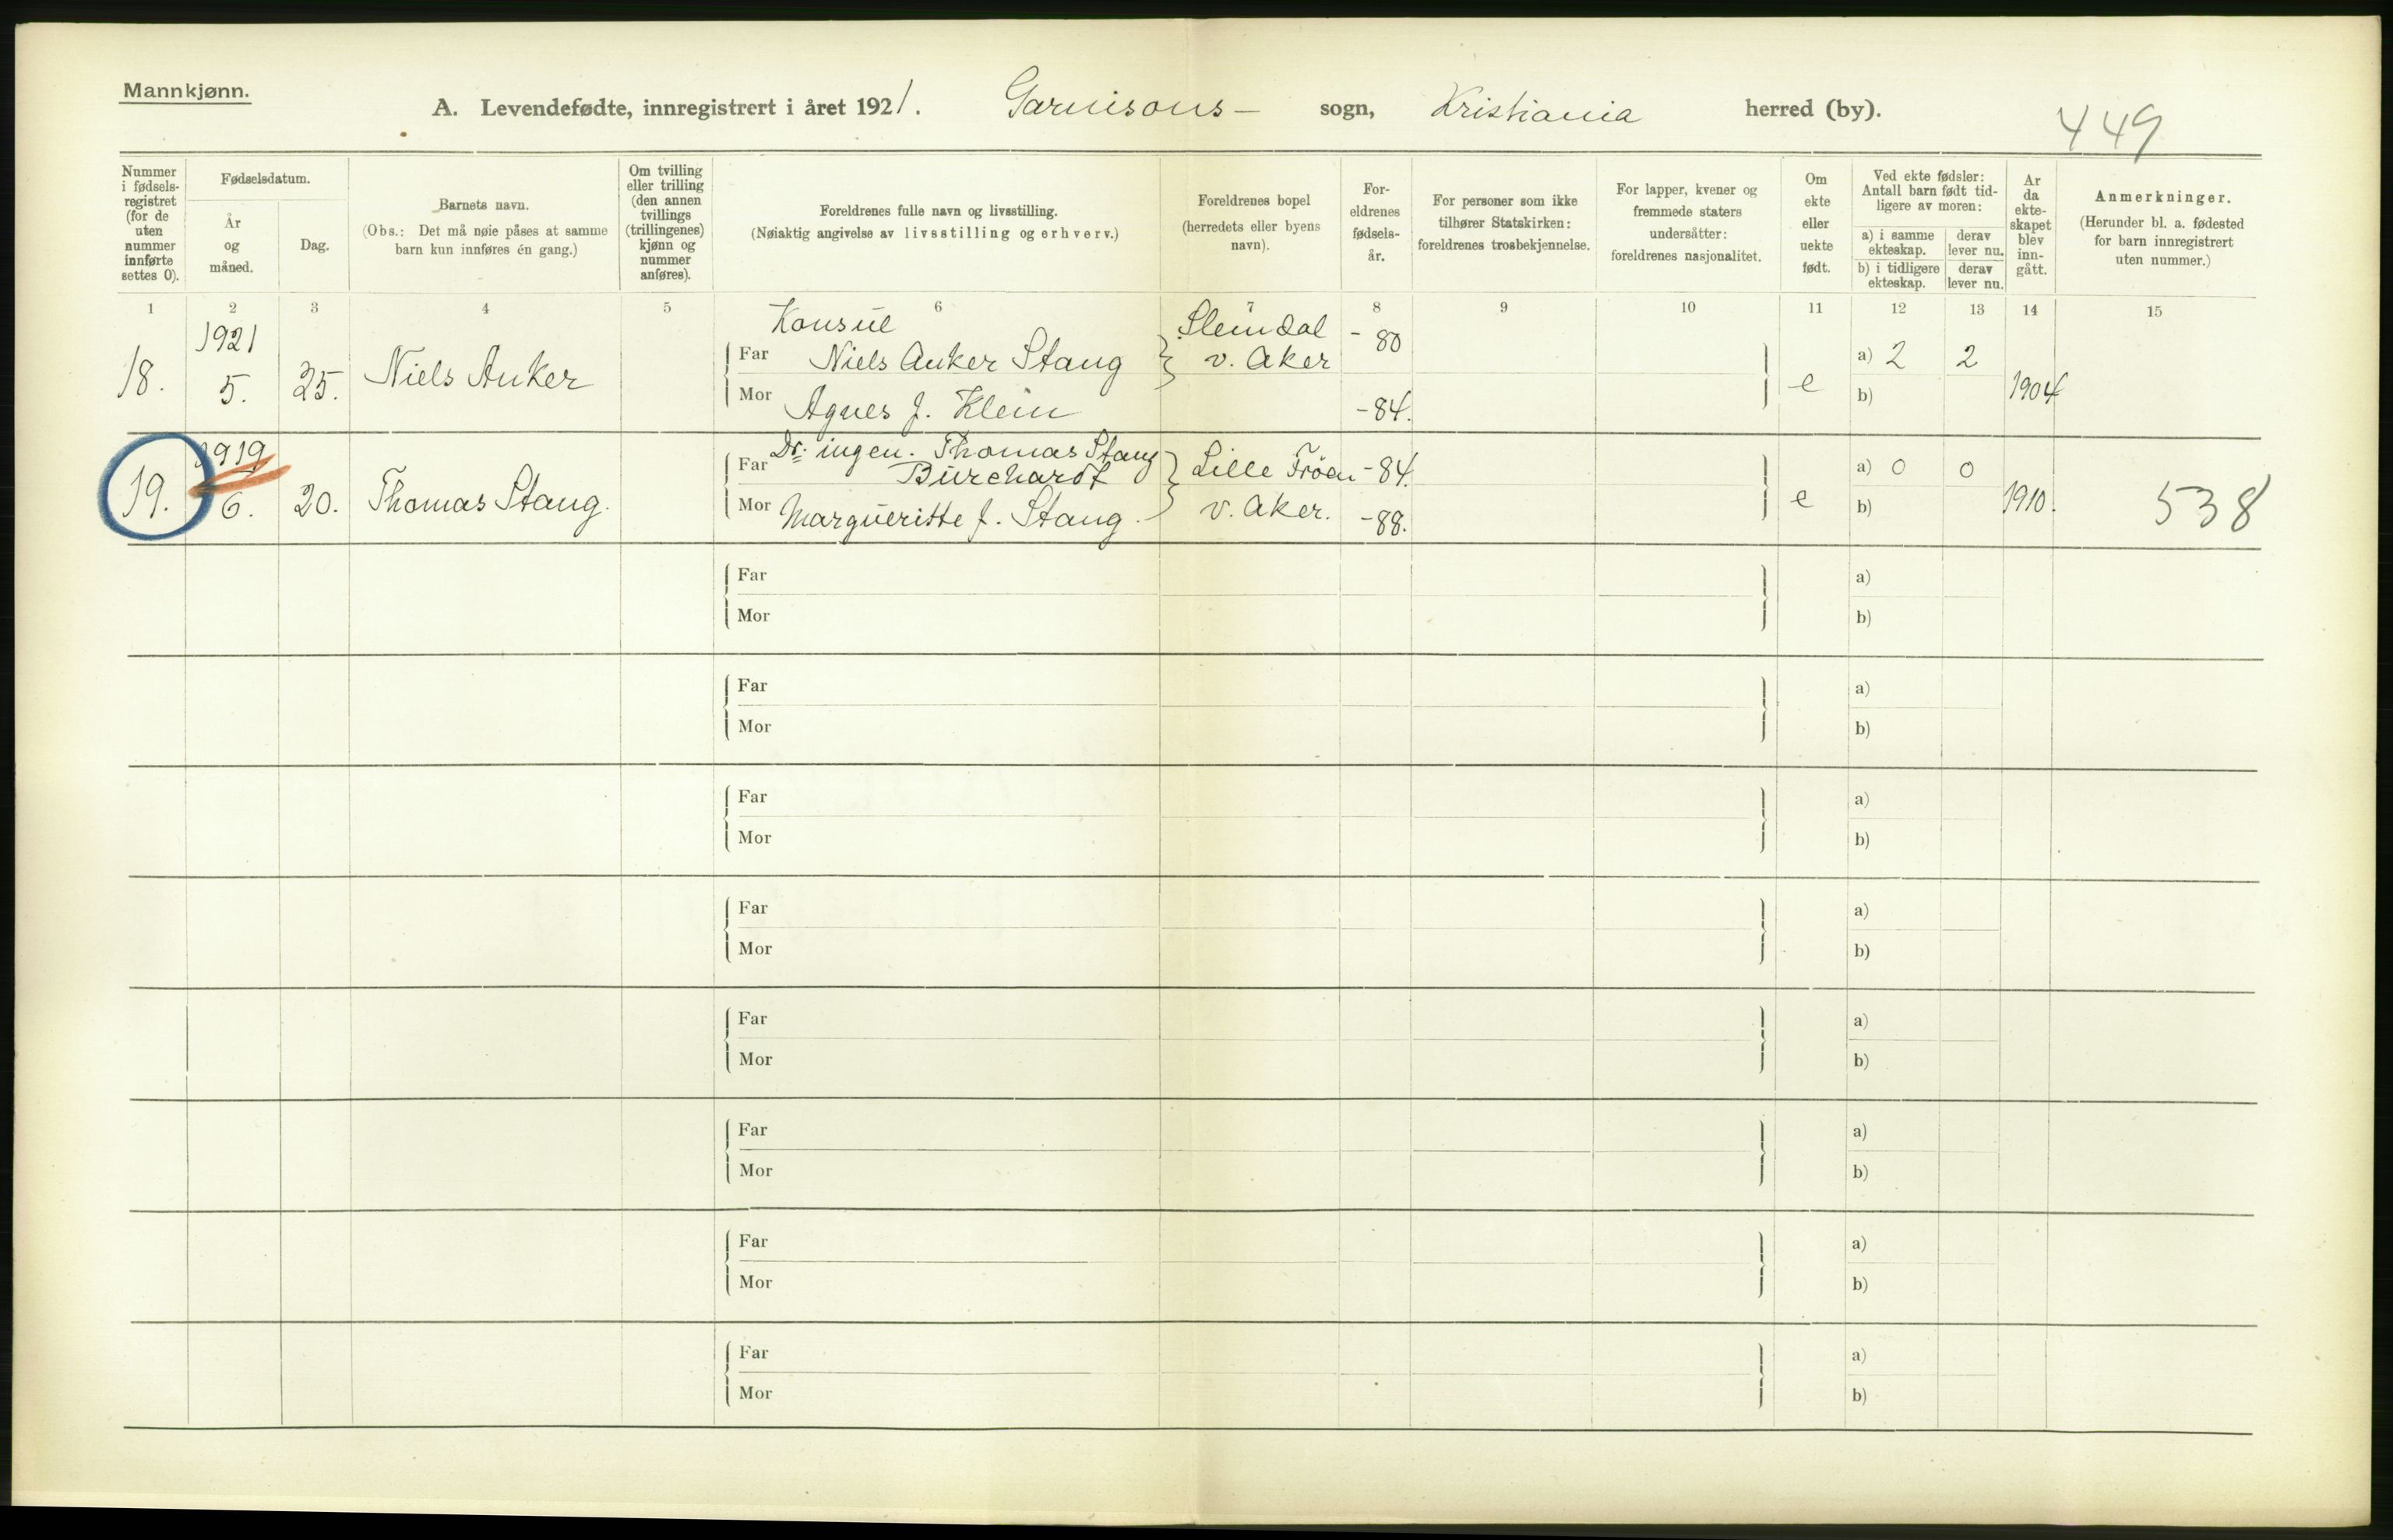 Mannkjønn.
A. Levendefødte, innregistrert i året 1921. Garnisons- sogn, Kristiania herred (by).
449
Nummer i fødsels-registret (for de uten nummer innførte settes 0).
Fødselsdatum.
År og måned.
Dag.
Barnets navn.
(Obs.: Det må nøie påses at samme barn kun innføres én gang.)
Om tvilling eller trilling (den annen tvillings (trillingenes) kjønn og nummer anføres).
Foreldrenes fulle navn og livsstilling.
(Nøiaktig angivelse av livsstilling og erhverv.)
Foreldrenes bopel
(herredets eller byens navn).
For-eldrenes fødsels-år.
For personer som ikke tilhører Statskirken: foreldrenes trosbekjennelse.
For lapper, kvener og fremmede staters undersåtter: foreldrenes nasjonalitet.
Om ekte eller uekte født.
Ved ekte fødsler: Antall barn født tid-ligere av moren:
a) i samme ekteskap.
derav lever nu.
b) i tidligere ekteskap.
derav lever nu.
År da ekte-skapet blev inn-gått.
Anmerkninger.
(Herunder bl. a. fødested for barn innregistrert uten nummer.)
1 2 3 4 5 6 7 8 9 10 11 12 13 14 15
18. 1921 5. 25. Niels Anker
Konsul
Far Niels Anker Stang
Mor Agnes f. Klein
Slemdal
v. Aker
-80
-84.
e
a) 2 2
b)
1904
19. 1919 6. 20. Thomas Stang.
Far Dr. ingen. Thomas Stang
Burchardt
Mor Margueritte f. Stang.
Lille Fröen
v. Aker.
-84.
-88.
e
a) 0 0
b)
1910.
538
Far a)
Mor b)
Far a)
Mor b)
Far a)
Mor b)
Far a)
Mor b)
Far a)
Mor b)
Far a)
Mor b)
Far a)
Mor b)
Far a)
Mor b)